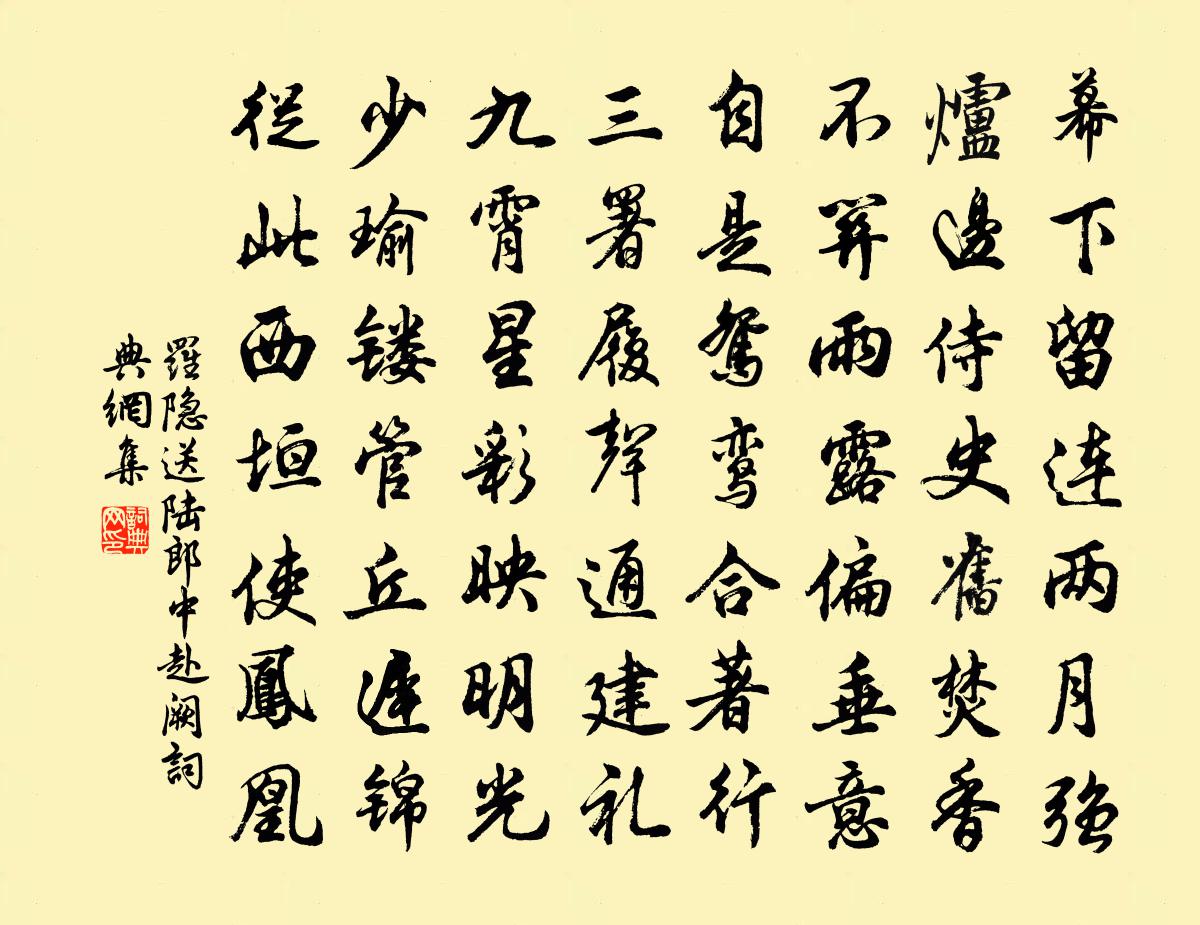 幕下留连两月强
爐邊侍史舊焚香
不关雨露偏垂意
自是鴛鸾合著行
三署履聲通建礼
九霄星彩映明光
少瑜镂管丘遲锦
從此西垣使鳳凰
羅隐送陆郎中赴阙詞
典網集
詞典网印